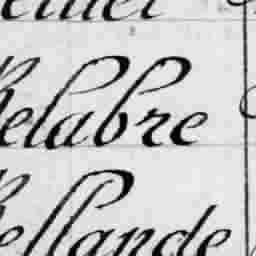 Belabre
Bellande